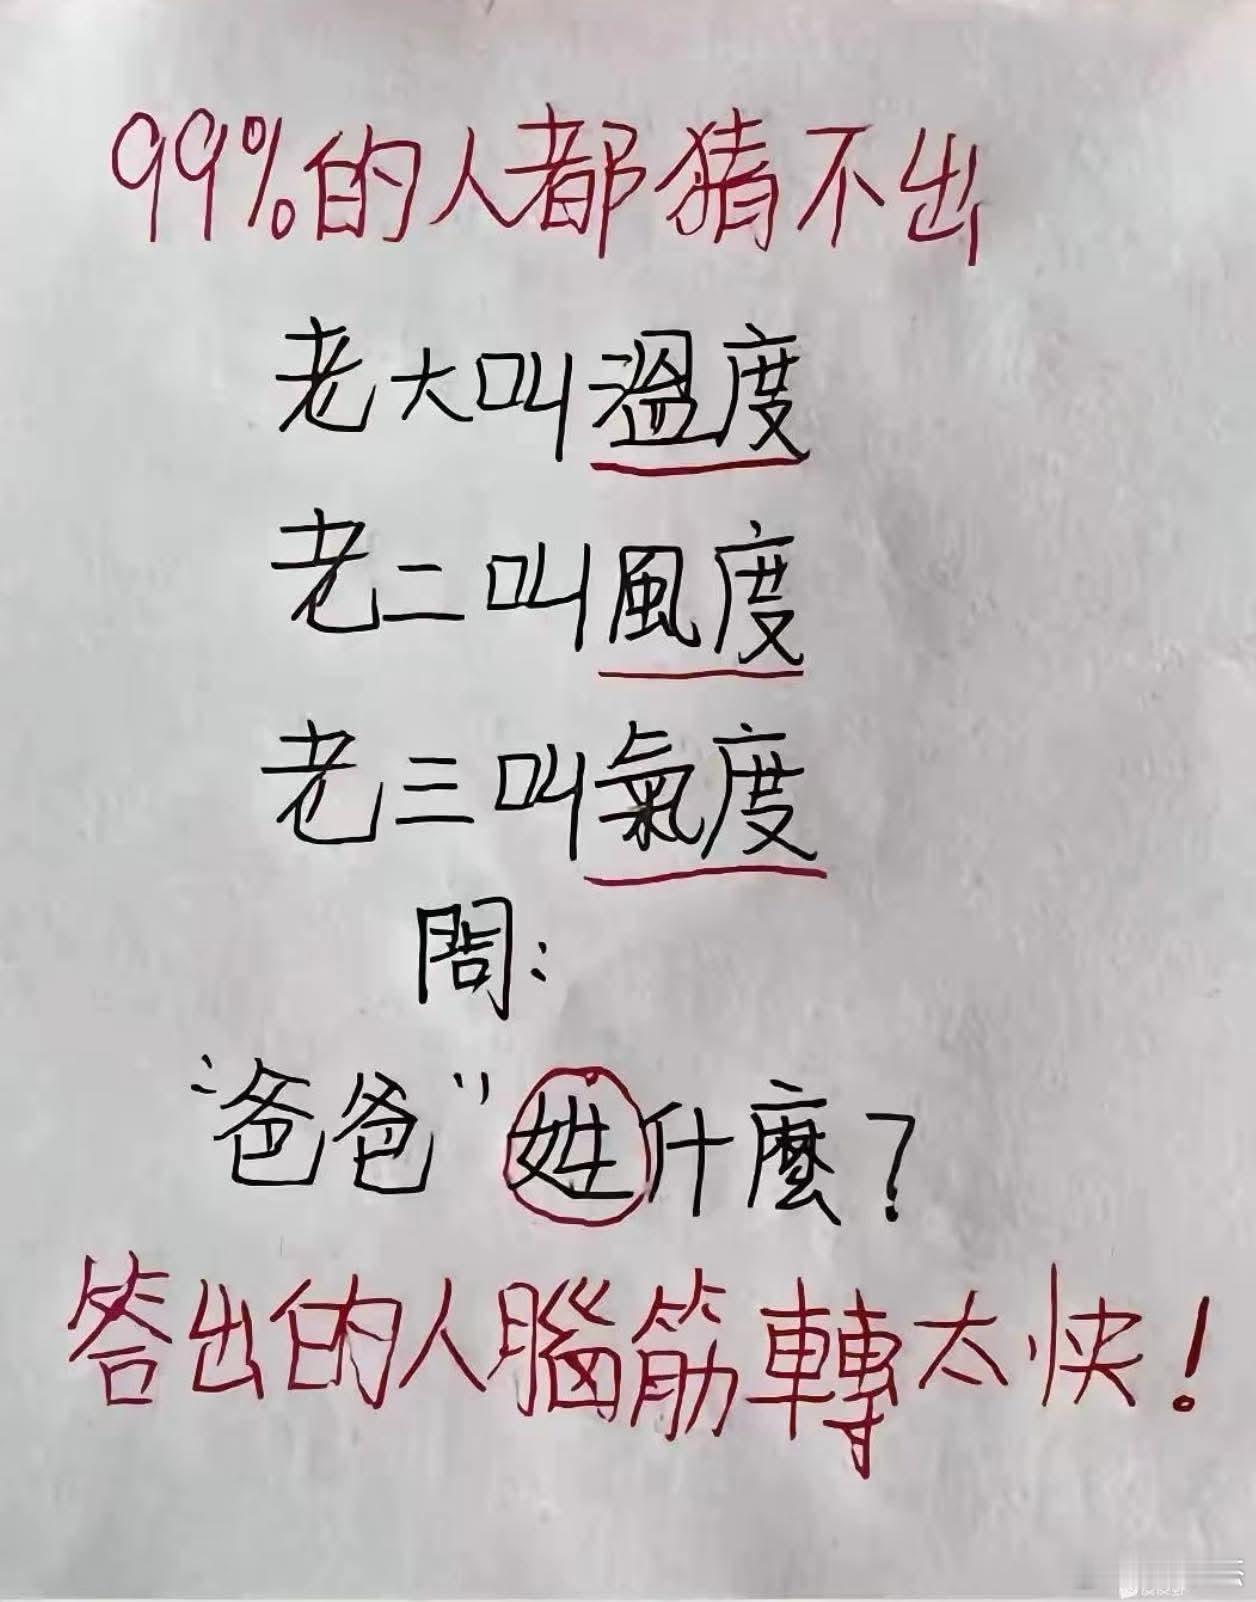 99%的人都猜不出
老大叫溫度
老二叫風度
老三叫氣度
問:
"爸爸"姓什麼?
答出的人腦筋轉太快!